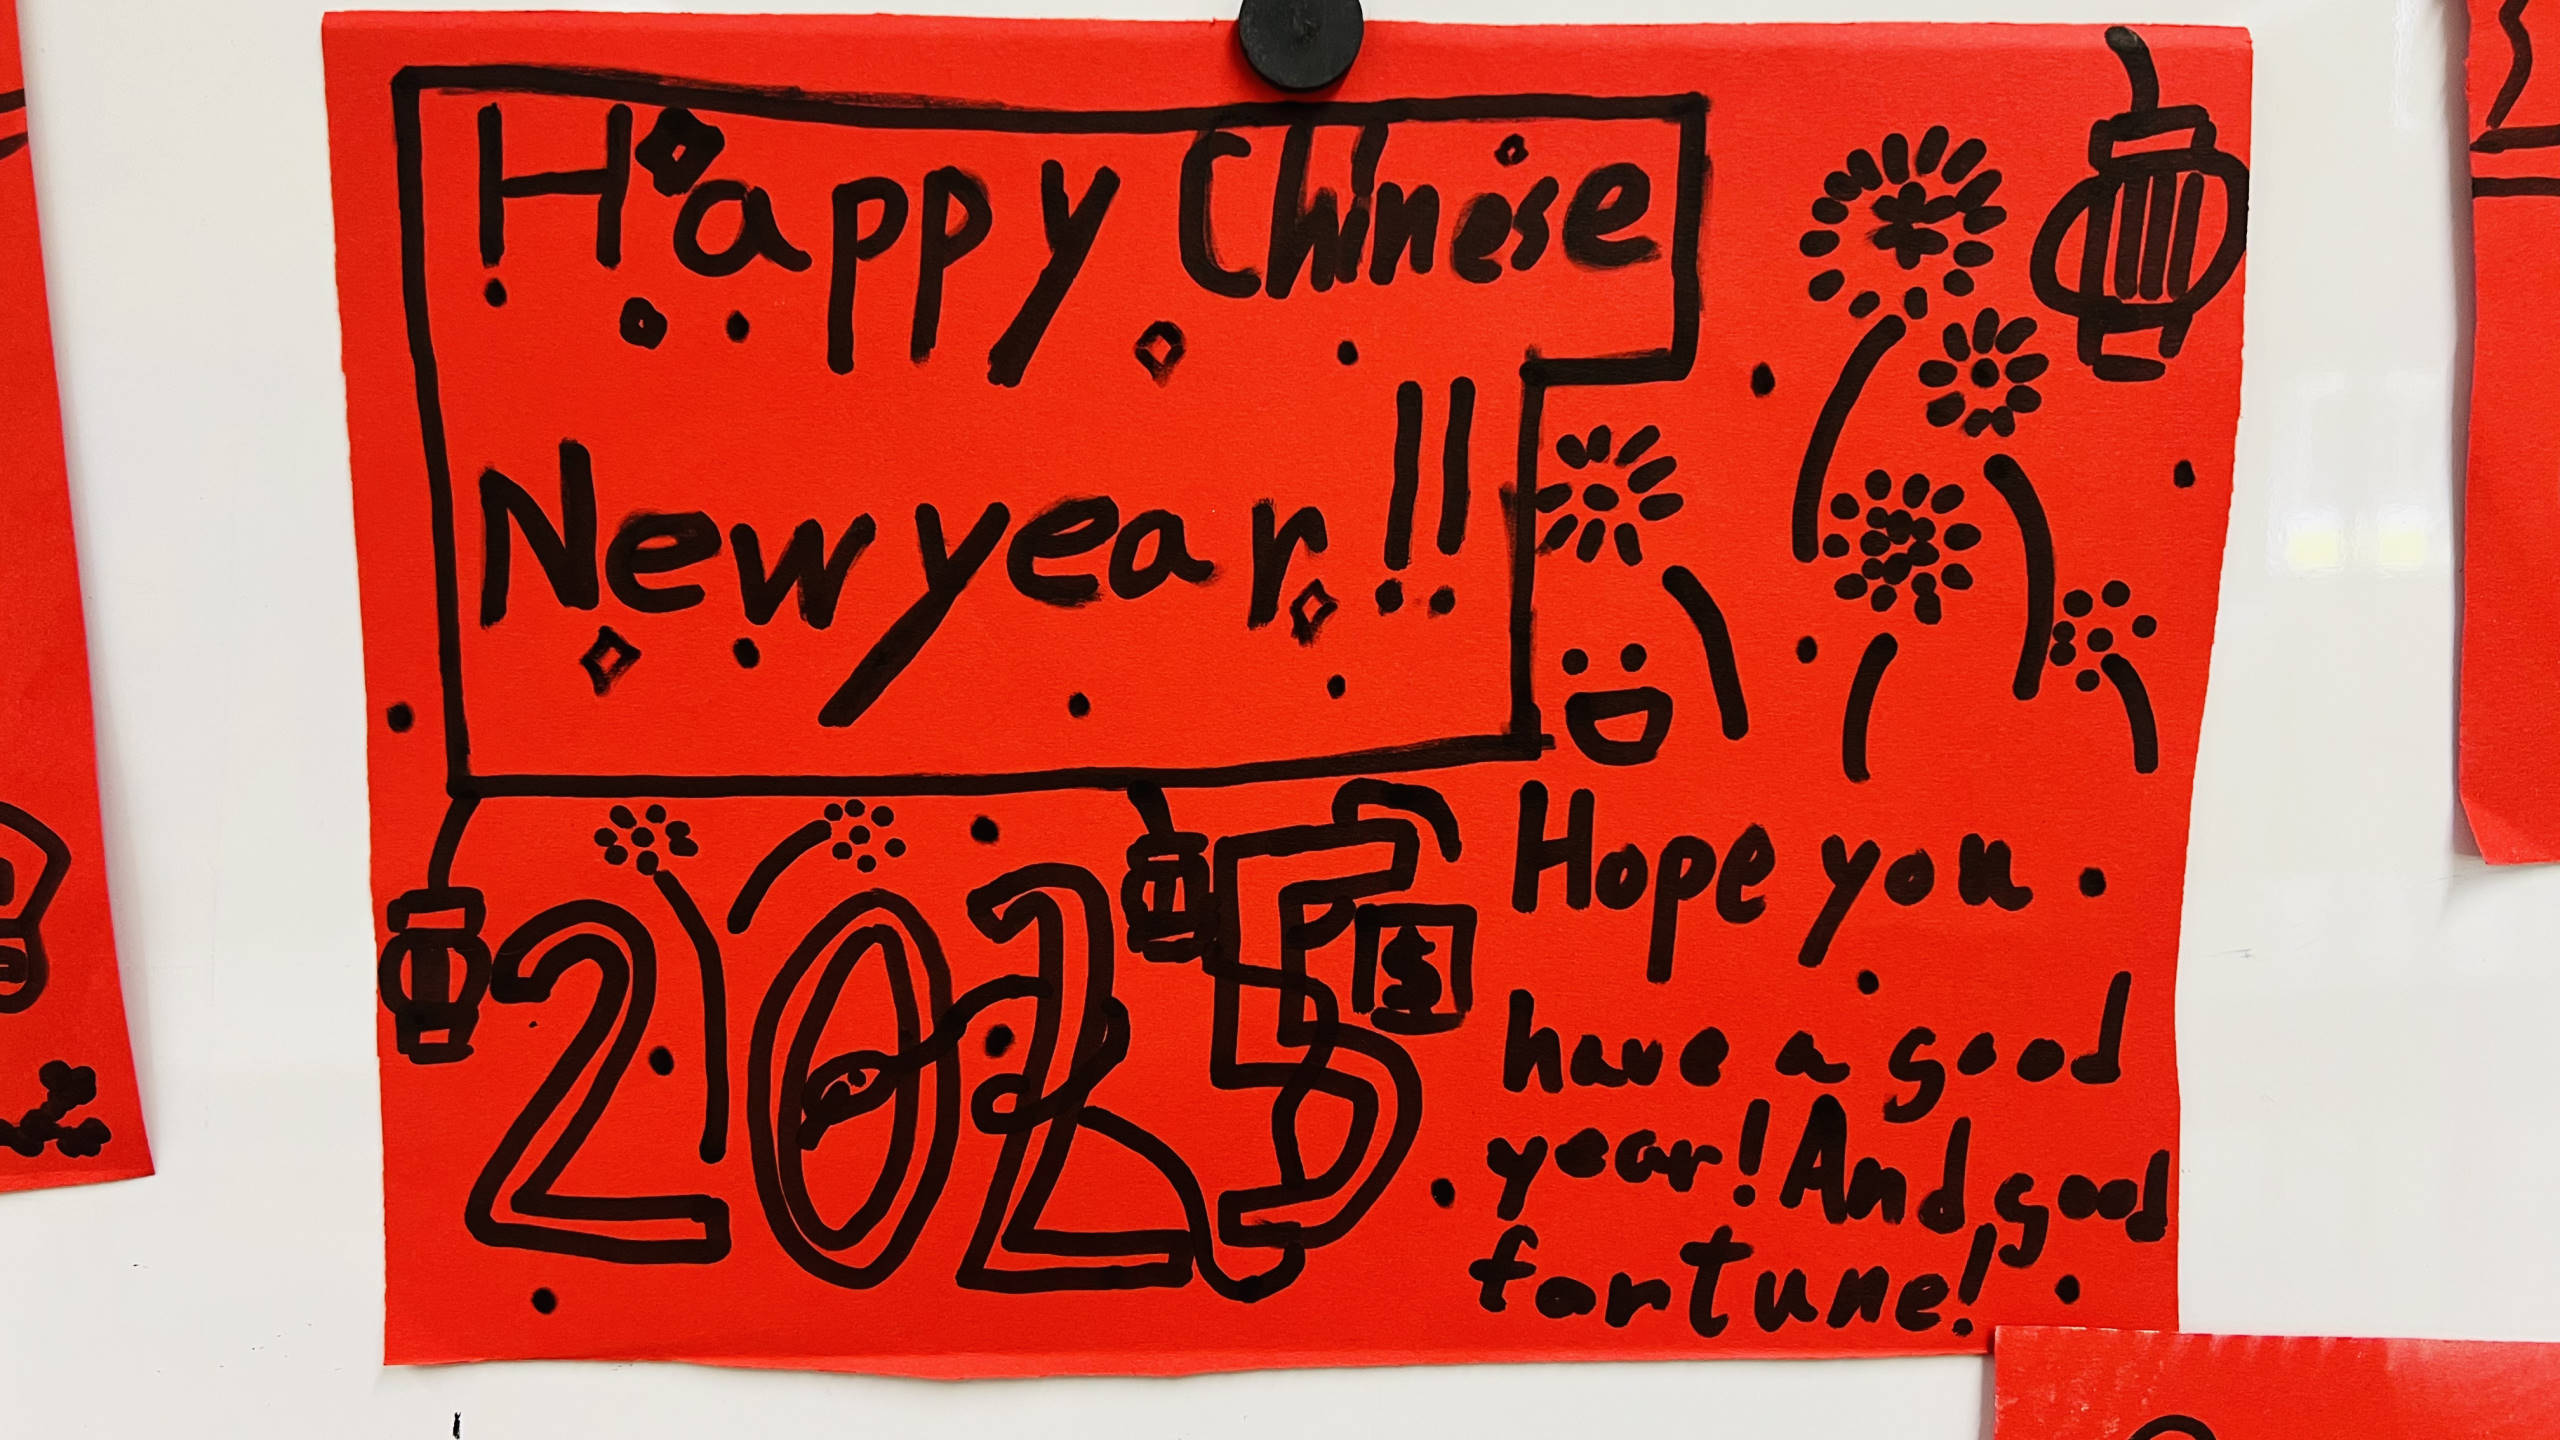 Happy Chinese
New year!!
2025
$
Hope you
have a good
year! And good
fortune!